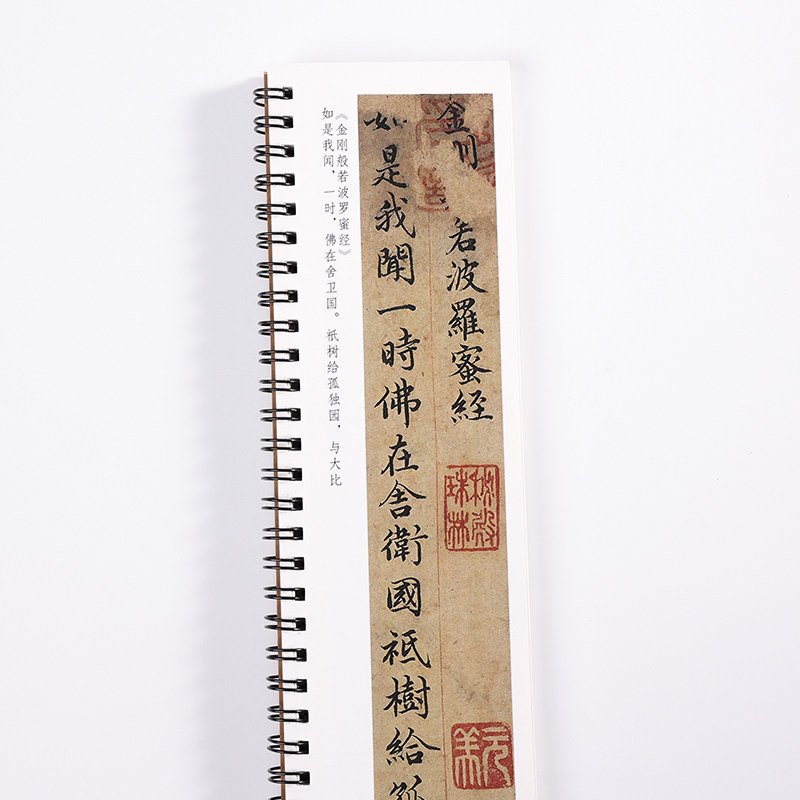 金
若波羅蜜經
秘殿
珠林
如是我聞一時佛在舍衛國祇樹給
《金刚般若波罗蜜经》
如是我闻，一时，佛在舍卫国。祇树给孤独园，与大比